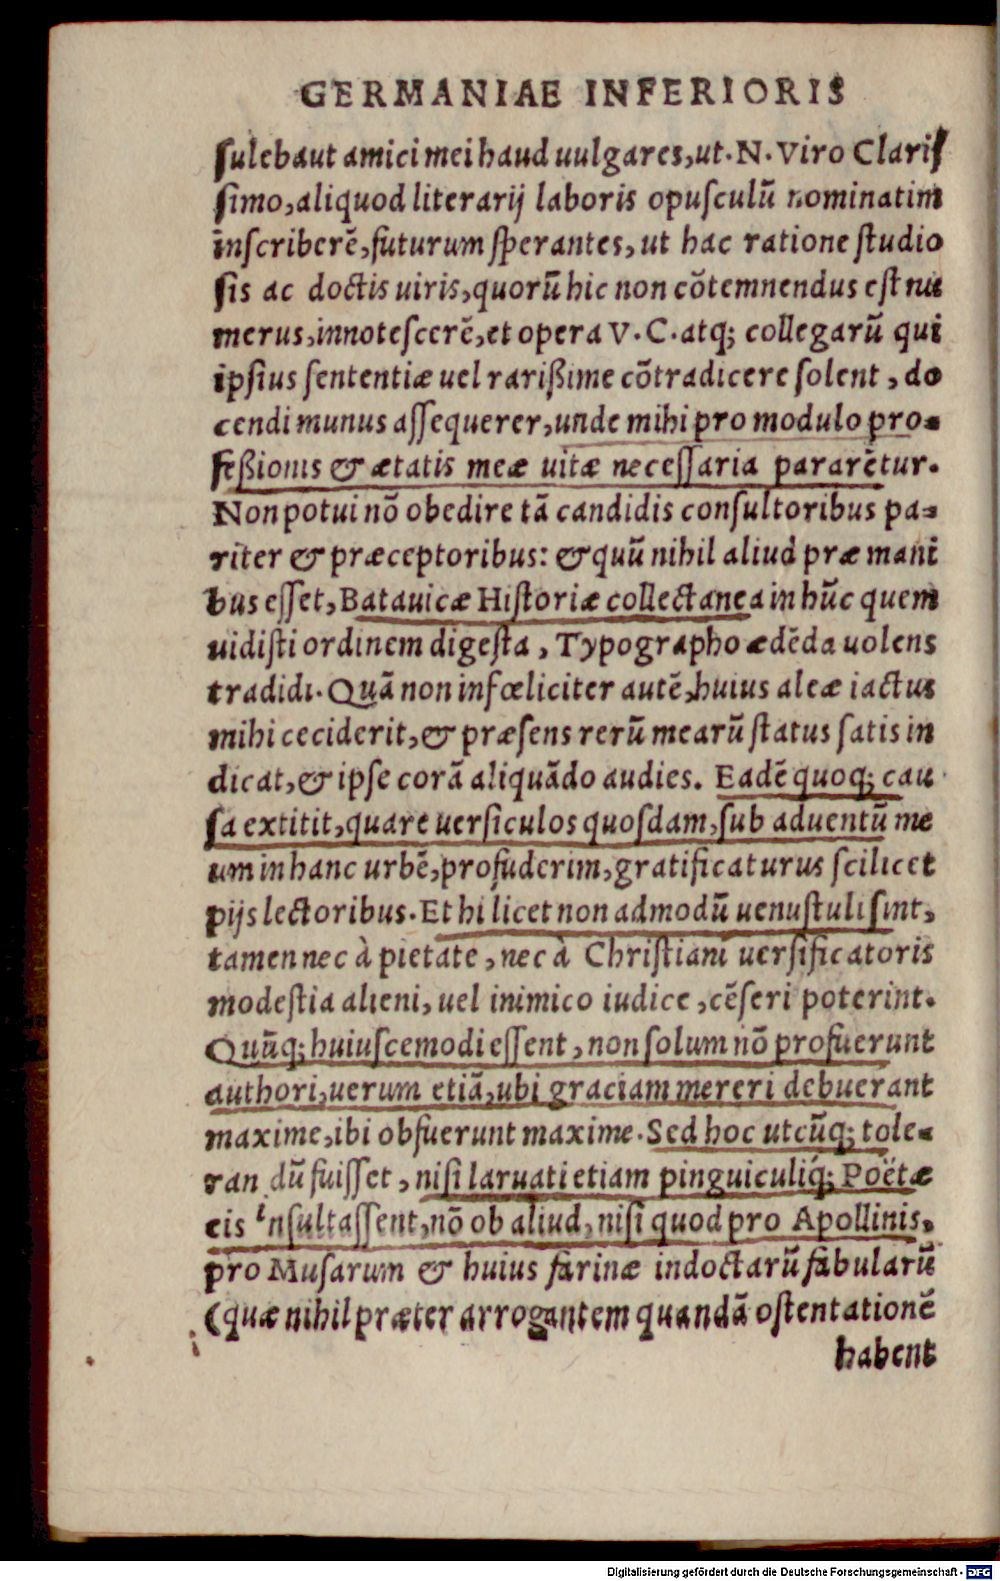 GERMANIAE INFERIORIS
ſulebãt amici mei haud uulgares, ut. N. Viro Clariſ
ſimo, aliquod literarij laboris opuſculũ nominatim
inſcriberẽ, futurum ſperantes, ut hac ratione ſtudio
ſis ac doctis uiris, quorũ hic non cõtemnendus eſt nu
merus, innoteſcerẽ, et opera V. C. atq; collegarũ qui
ipſius ſententiæ uel rarißime cõtradicere ſolent, do
cendi munus aſſequerer, unde mihi pro modulo pro-
feßionis & ætatis meæ uitæ neceſſaria pararẽtur.
Non potui nõ obedire tã candidis conſultoribus pa-
riter & præceptoribus: & quũ nihil aliud præ mani
bus eſſet, Batauicæ Hiſtoriæ collectanea in hũc quem
uidiſti ordinem digeſta, Typographo ædẽda uolens
tradidi. Quã non infœliciter autẽ, huius aleæ iactus
mihi ceciderit, & præſens rerũ mearũ ſtatus ſatis in
dicat, & ipſe corã aliquãdo audies. Eadẽ quoq; cau
ſa extitit, quare uerſiculos quoſdam, ſub aduentũ me
um in hanc urbẽ, profuderim, gratificaturus ſcilicet
pijs lectoribus. Et hi licet non admodũ uenuſtuli ſint,
tamen nec à pietate, nec à Chriſtiani uerſificatoris
modeſtia alieni, uel inimico iudice, cẽſeri poterint.
Quũq; huiuſcemodi eſſent, non ſolum nõ profuerunt
authori, uerum etiã, ubi graciam mereri debuerant
maxime, ibi obfuerunt maxime. Sed hoc utcũq; tole-
ran dũ fuiſſet, niſi laruati etiam pinguiculiq́; Poëtæ
eis inſultaſſent, nõ ob aliud, niſi quod pro Apollinis,
pro Muſarum & huius farinæ indoctarũ fabularũ
(quæ nihil præter arrogantem quandã oſtentationẽ
habent
Digitalisierung gefördert durch die Deutsche Forschungsgemeinschaft - DFG